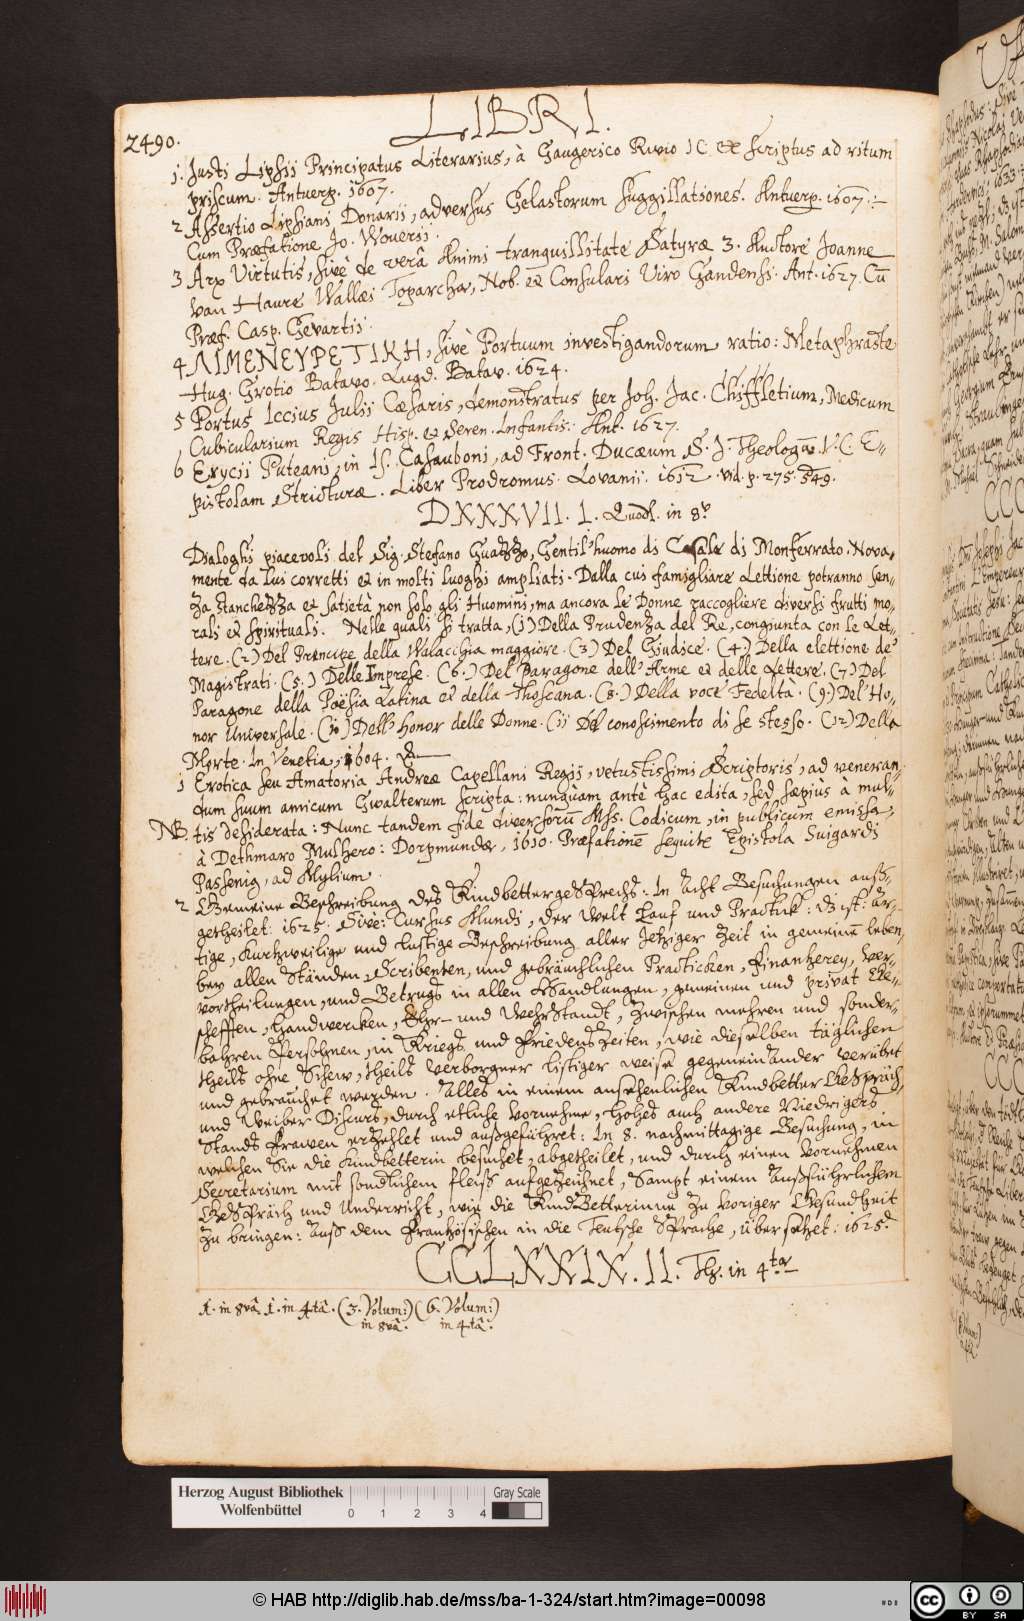 LIBRI.
2490.
1. Justi Lipsii Principatus Literarius, à Gaugerico Rivio JC. ex scriptus ad ritum
priscum. Antuerp. 1607.
2 Assertio Lipsiani Donarii, adversus Gelastorum Suggillationes. Antuerp. 1607.
Cum Præfatione Jo. Woverii.
3 Arx Virtutis, sive de verâ Animi tranquillitate Satyræ 3. Auctore Joanne
van Havre Wallæi Toparcha, Nob. et Consulari Viro Gandensi. Ant. 1627. Cū
Præf. Casp. Gevartii.
4 ΛΙΜΕΝΕΥΡΕΤΙΚΗ, sivè Portuum investigandorum ratio: Metaphraste
Hug. Grotio Batavo. Lugd. Batav. 1624.
5 Portus Iccius Julii Cæsaris, demonstratus per Joh. Jac. Chiffletium, Medicum
Cubicularium Regis Hisp. et Seren. Infantis. Ant. 1627.
6 Erycii Puteani, in Is. Casauboni, ad Front. Ducæum S. J. Theologū. V. C. E-
pistolam Stricturæ. Liber Prodromus. Lovanii. 1612. vid. p. 275. 549.
DXXXVII. 1. Quodl. in 8º
Dialoghi piacevoli del Sig. Stefano Guazzo, Gentil'huomo di Casale di Monferrato. Nova-
mente da lui corretti et in molti luoghi ampliati. Dalla cui famigliare Lettione potranno sen-
za stanchezza et satietà non solo gli Huomini, ma ancora le Donne raccogliere diversi frutti mo-
rali et spirituali. Nelle quali si tratta, (1) Della Prudenza del Re, congiunta con le Let-
tere. (2.) Del Prencipe della Walacchia maggiore. (3.) Del Giudice. (4.) Della elettione de'
Magistrati. (5.) Delle Imprese. (6.) Del Paragone dell'Arme et delle Lettere. (7.) Del
Paragone della Poësia Latina et della Thoscana. (8.) Della voce Fedeltà. (9.) Del Ho-
nor Universale. (10) Dell'honor delle Donne. (11 Del conoscimento di se stesso. (12) Della
Morte. In Venetia, 1604.
1 Erotica seu Amatoria Andreæ Capellani Regii, vetustissimi Scriptoris, ad veneran-
dum suum amicum Gwalterum scripta: nunquam antè hac edita, sed sæpius à mul-
NB. tis desiderata: Nunc tandem fide diversorū Mss. Codicum, in publicum emissa,
à Dethmaro Mulhero: Dorpmundæ, 1610. Præfationē sequite Epistola Suigardi
Passenig, ad Mylium.
2 Gemeine Beschreibung des Kindbettergesprechs: In Acht Besuchungen auß-
getheilet: 1625. Sive: Cursus Mundi, der Welt Lauf und Practick: dz ist: ar-
tige, kurtzweilige und lustige Beschreibung aller Jetziger Zeit in gemeinē leben,
bey allen Ständen, Scribenten, und gebräuchlichen Practicken, finantzerey, Ver-
vortheilungen, und Betrugs in allen Handlungen, gemeinen und privat Ge-
scheften, handwercken, Ehr- und WehrStandt, zwischen mehren und sonder-
bahren Persohnen, in Kriegs und Friedens Zeiten, wie dieselben täglichen
theils ohne Schew, theils verborgener listiger weise gegeneinander verübet
und gebrauchet werden. Alles in einem ansehenlichen Kindbetter Gespräch,
und Weiber Discurs, durch etliche Vornehme, Hohes auch andere Niedrigers
Standts Frawen erzehlet und außgeführet: In 8. nachmittagige Besuchung, in
welchen Sie die Kindbetterin besuchet, abgetheilet, und durch einen Vornehmen
Secretarium mit sondlichem fleiß aufgezeichnet, Sampt einem Außführlichem
GeSpräch und Underricht, wie die KindBetterinne zu voriger Gesundheit
zu bringen: Auß dem Frantzösischen in die Teutsche Sprache, übersetzet. 1625.
CCLXXIX. 11. Th. in 4ta
1. in 8vâ. 1. in 4tâ. (3. Volum:) (6. Volum:)
in 8vâ. in 4tâ.
Herzog August Bibliothek
Wolfenbüttel
0 1 2 3 4
Gray Scale
© HAB http://diglib.hab.de/mss/ba-1-324/start.htm?image=00098
cc BY SA